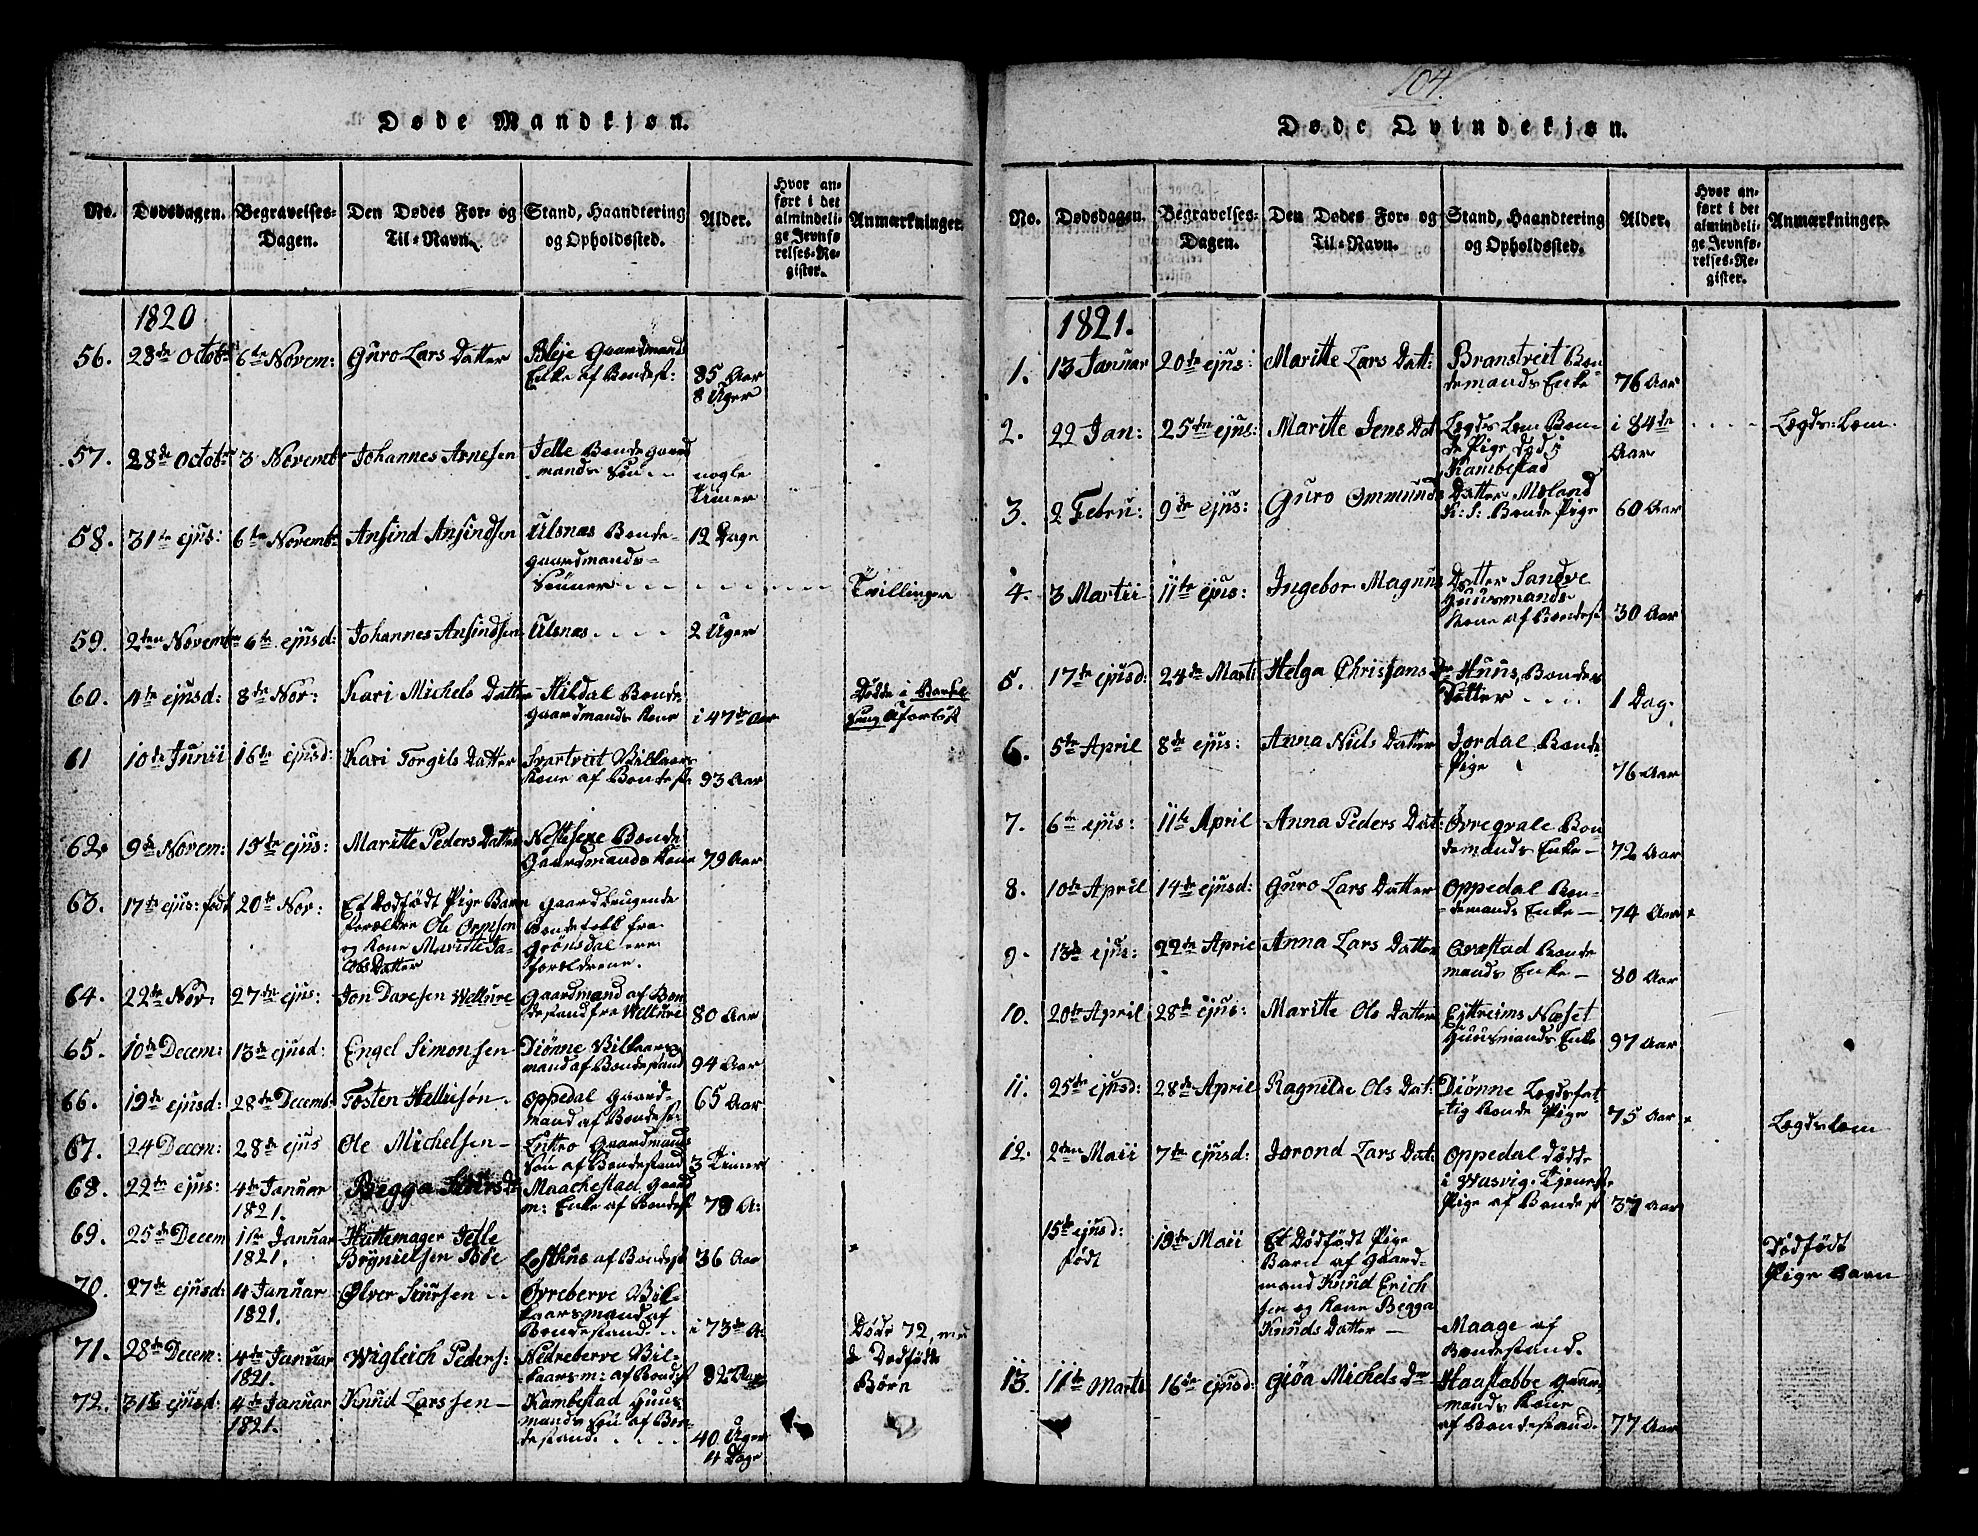 Døde Mandkjøn.
No. Dødsdagen. Begravelses-Dagen. Den Dødes For- og Til-Navn. Stand, Haandtering og Opholdssted. Alder. Hvor anført i det almindelige Jevnførelses-Register. Anmærkninger.
1820
56. 28de Octobr 6te Novem: Guro Lars Datter Bleje Gaardmand
Enke af Bondest: 85 Aar
8 Uger
57. 28de Octobr 3 Novembr Johannes Arnesen Jelle Bonde Gaard
mands Søn nogle
Timer
58. 31te ejus: 6te Novembr Ansind Ansindsen Ulsnæs Bonde- 12 Dage
gaardmands-
Sønner Tvillinger
59. 2den Novembr 6te ejusd: Johannes Ansindsen Ulsnæs 2 Uger
60. 4de ejusd: 8de Nov: Kari Michels Datter Hildal Bonde Døde i Barsel
gaardmands Kone i 47de Aar Seng uforløst
61 10de Junii 16de ejusd: Kari Torgils Datter Svartveit Vilkaars
Kone af Bondest. 93 Aar
62. 9de Novem: 15de ejus: Maritte Peders Datter Nestesexe Bonde
Gaardmands Kone 79 Aar
63. 17te ejus: født 20de Nov: Et Dødfødt Pige Barn Gaardbrugende
Forældre Ole Ormsen Bondefolk fra
og Kone Maritte Ja- Grønsdal ere
cobs Datter Forældrene.
64. 22de Nov. 27de ejus: Jon Daresen Wellure Gaardmand af Bon
destand fra Wellure 80 Aar
65. 10de Decem: 13de ejusd: Engel Simonsen Diønne Vilkaars
mand af Bondestand 94 Aar
66. 19de ejusd: 28de Decembr Tosten Hellisøn Oppedal Gaard- 65 Aar
mand af Bondest:
67. 24 Decem: 28de ejus Ole Michelsen Luttro Gaardmands
Søn af Bondestand 3 Timer
68. 22de ejus: 4de Januar Begga Siurs Dtr Maachestad Gaard
1821. m: Enke af Bondest 79 A:
69. 25de Decem 11te Januar Hattemager Jelle
1821. Brynielsen Tode Lofthus af Bondest 36 Aar
70. 27de ejusd: 4 Januar Ølver Siursen Øvreberve Vil-
1821. kaarsmand af
Bondestand i 73de A: Døde 72, med
71. 28de Decem: 4de Januar Wigleich Peders: Nedreberve Vil- de Dødfødte
1821. kaarsm: af Bondst 82 Aar Børn
72. 31te ejusd: 4de Januar Knud Larssen Kambestad Huus
1821. mands Søn af Bon-
destand 40 Uger
4 Dage
104.
Døde Qvindekjøn.
No. Dødsdagen. Begravelses-Dagen. Den Dødes For- og Til-Navn. Stand, Haandtering og Opholdssted. Alder. Hvor anført i det almindelige Jevnførelses-Register. Anmærkninger.
1821.
1. 13 Januar 20de ejus: Maritte Lars Datt: Branstveit Bon-
demands Enke 76 Aar
2. 22 Jan: 25de ejus: Maritte Jens Dat Lægds Lem Bon i 84de Lægds-Lem
de Pige, Død i Aar
Kambestad
3. 2 Febru: 9de ejus: Guro Ommunds Datter Moland
K: S: Bonde Pige 60 Aar
4. 3 Martii 11te ejus: Ingebor Magnus Datter Sandve
Huusmands
Kone af Bondest 30 Aar
5. 17de ejusd: 24de Marti Helga Christians Dtr Huus, Bonde
Datter 1 Dag.
6. 5te April 8de ejus: Anna Niels Datter Jordal Bonde
Pige 76 Aar
7. 6te ejus: 11te April Anna Peders Dat: Øvregvale Bon
demands Enke 72 Aar
8. 10de April 14de ejusd: Guro Lars Datter Oppedal Bon-
demands Enke 74 Aar
9. 13de ejus: 22de April Anna Lars Datter Qvæstad Bonde
mands Enke 80 Aar
10. 20de April 28de ejus: Maritte Ols Datter Eittreims Næset
Huusmands Enke 97 Aar
11. 25de ejusd: 28de April Ragnilde Ols Dat: Diønne Lægdsfat
tig Bonde Pige 75 Aar Lægdslem
12. 2den Maii 7de ejusd: Jorond Lars Dat: Oppedal Dødte
i Wasvig. Tjeneste
Pige af Bondest 37 Aar
15de ejusd: 19de Maii Et Dødfødt Pige Dødfødt
født Barn af Gaard- Pige Barn
mand Knud Erich
sen og Kone Begga
Knuds Datter Maage af
Bondestand.
13. 11te Marts 16de ejusd: Giøa Michels Dtr Haastabbe Gaar
mands Kone
af Bondestand. 77 Aar